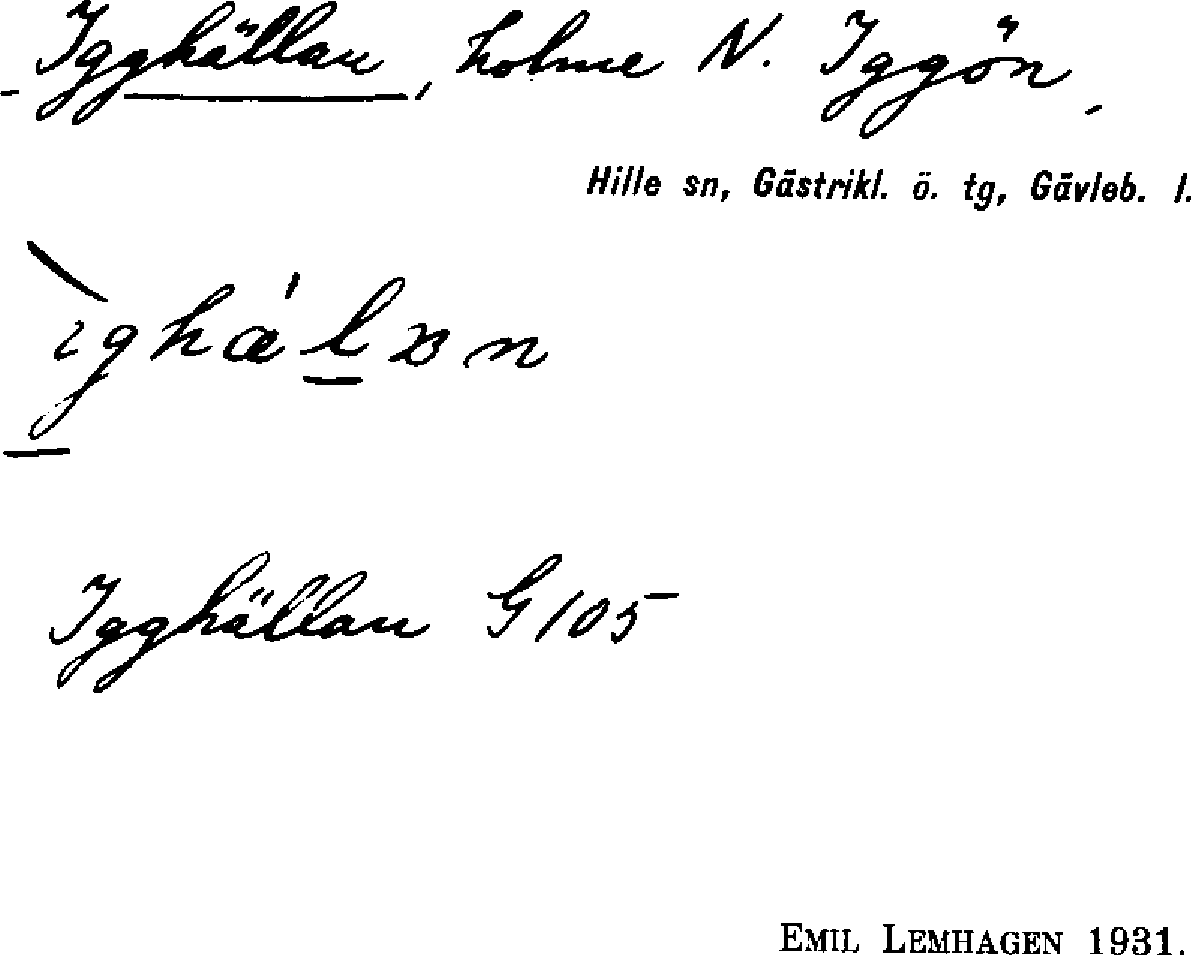 Igghällan, holme N. Iggön,
Hille sn, Gästrikl. ö. tg, Gävleb. l.
Igghällan G105
EMIL LEMHAGEN 1931.